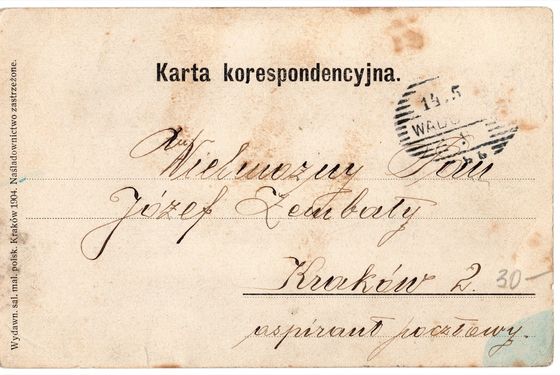 Karta korespondencyjna.
14.5
WADO
Wielmożny Pan
Józef Zembaty
Kraków 2.
30-
aspirant pocztowy.
Wydawn. sal. mal. polsk. Kraków 1904. Naśladownictwo zastrzeżone.